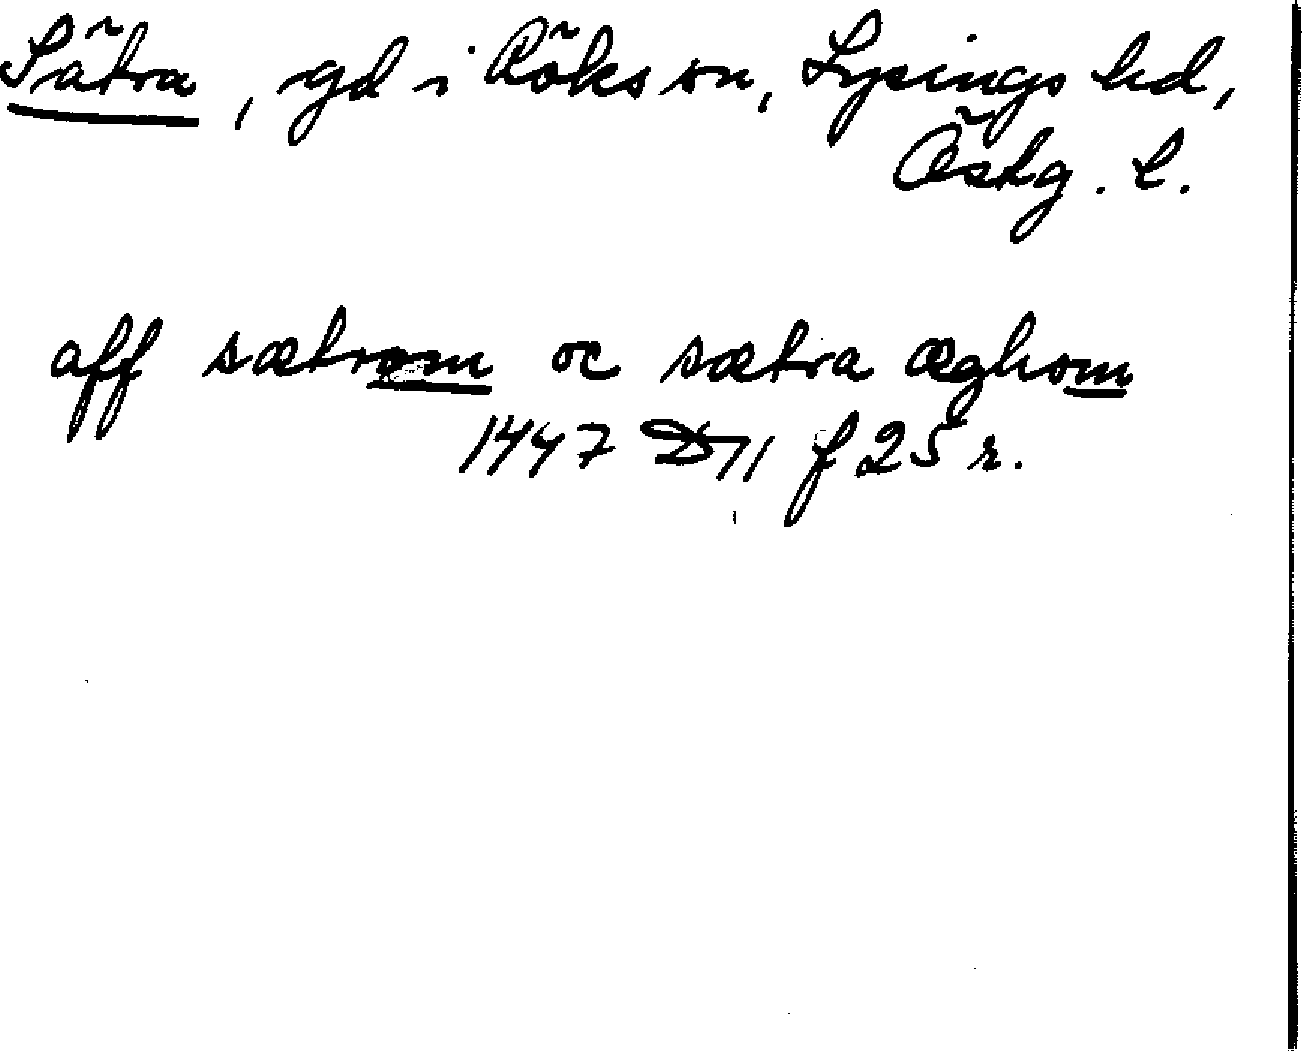 Sätra, gd i Röks sn, Lysings hd,
Östg. l.
aff sætrom oc sætra æghom
1447 D 11 f 25 r.